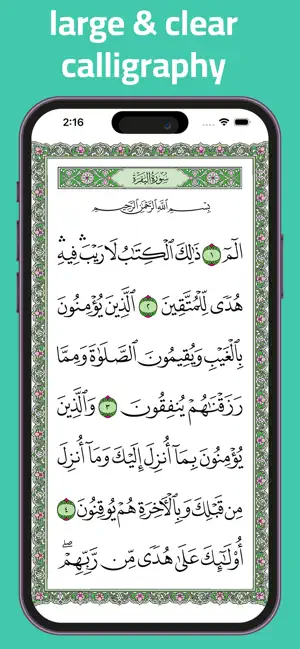 large & clear
calligraphy
2:16
سُورَةُ البَقَرَةِ
بِسْمِ اللَّهِ الرَّحْمَٰنِ الرَّحِيمِ
الٓمٓ ١ ذَٰلِكَ ٱلْكِتَٰبُ لَا رَيْبَ ۛ فِيهِ ۛ
هُدًى لِّلْمُتَّقِينَ ٢ ٱلَّذِينَ يُؤْمِنُونَ
بِٱلْغَيْبِ وَيُقِيمُونَ ٱلصَّلَوٰةَ وَمِمَّا
رَزَقْنَٰهُمْ يُنفِقُونَ ٣ وَٱلَّذِينَ
يُؤْمِنُونَ بِمَآ أُنزِلَ إِلَيْكَ وَمَآ أُنزِلَ
مِن قَبْلِكَ وَبِٱلْءَاخِرَةِ هُمْ يُوقِنُونَ ٤
أُو۟لَٰٓئِكَ عَلَىٰ هُدًى مِّن رَّبِّهِمْ ۖ